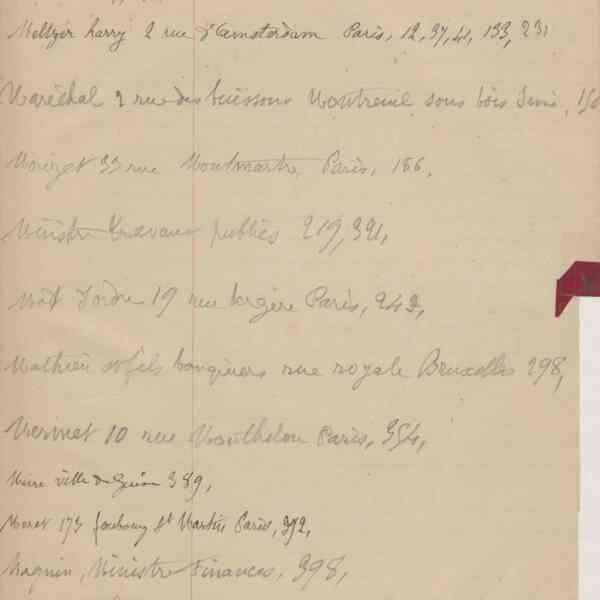 Meltzer harry 2 rue d'amsterdam Paris, 12, 37, 41, 133, 231
Maréchal 2 rue des buissons Montreuil sous bois Seine, 150
33 rue Montmartre, Paris, 166,
Ministre travaux publics 219, 321,
Mot d'ordre 19 rue bergère Paris, 242,
Mathieu et fils banquiers rue royale Bruxelles 298,
10 rue Montholon Paris, 354,
Maire ville de Guise 389,
Moret 173 faubourg St Martin Paris, 392,
Magnin, Ministre Finances, 398,